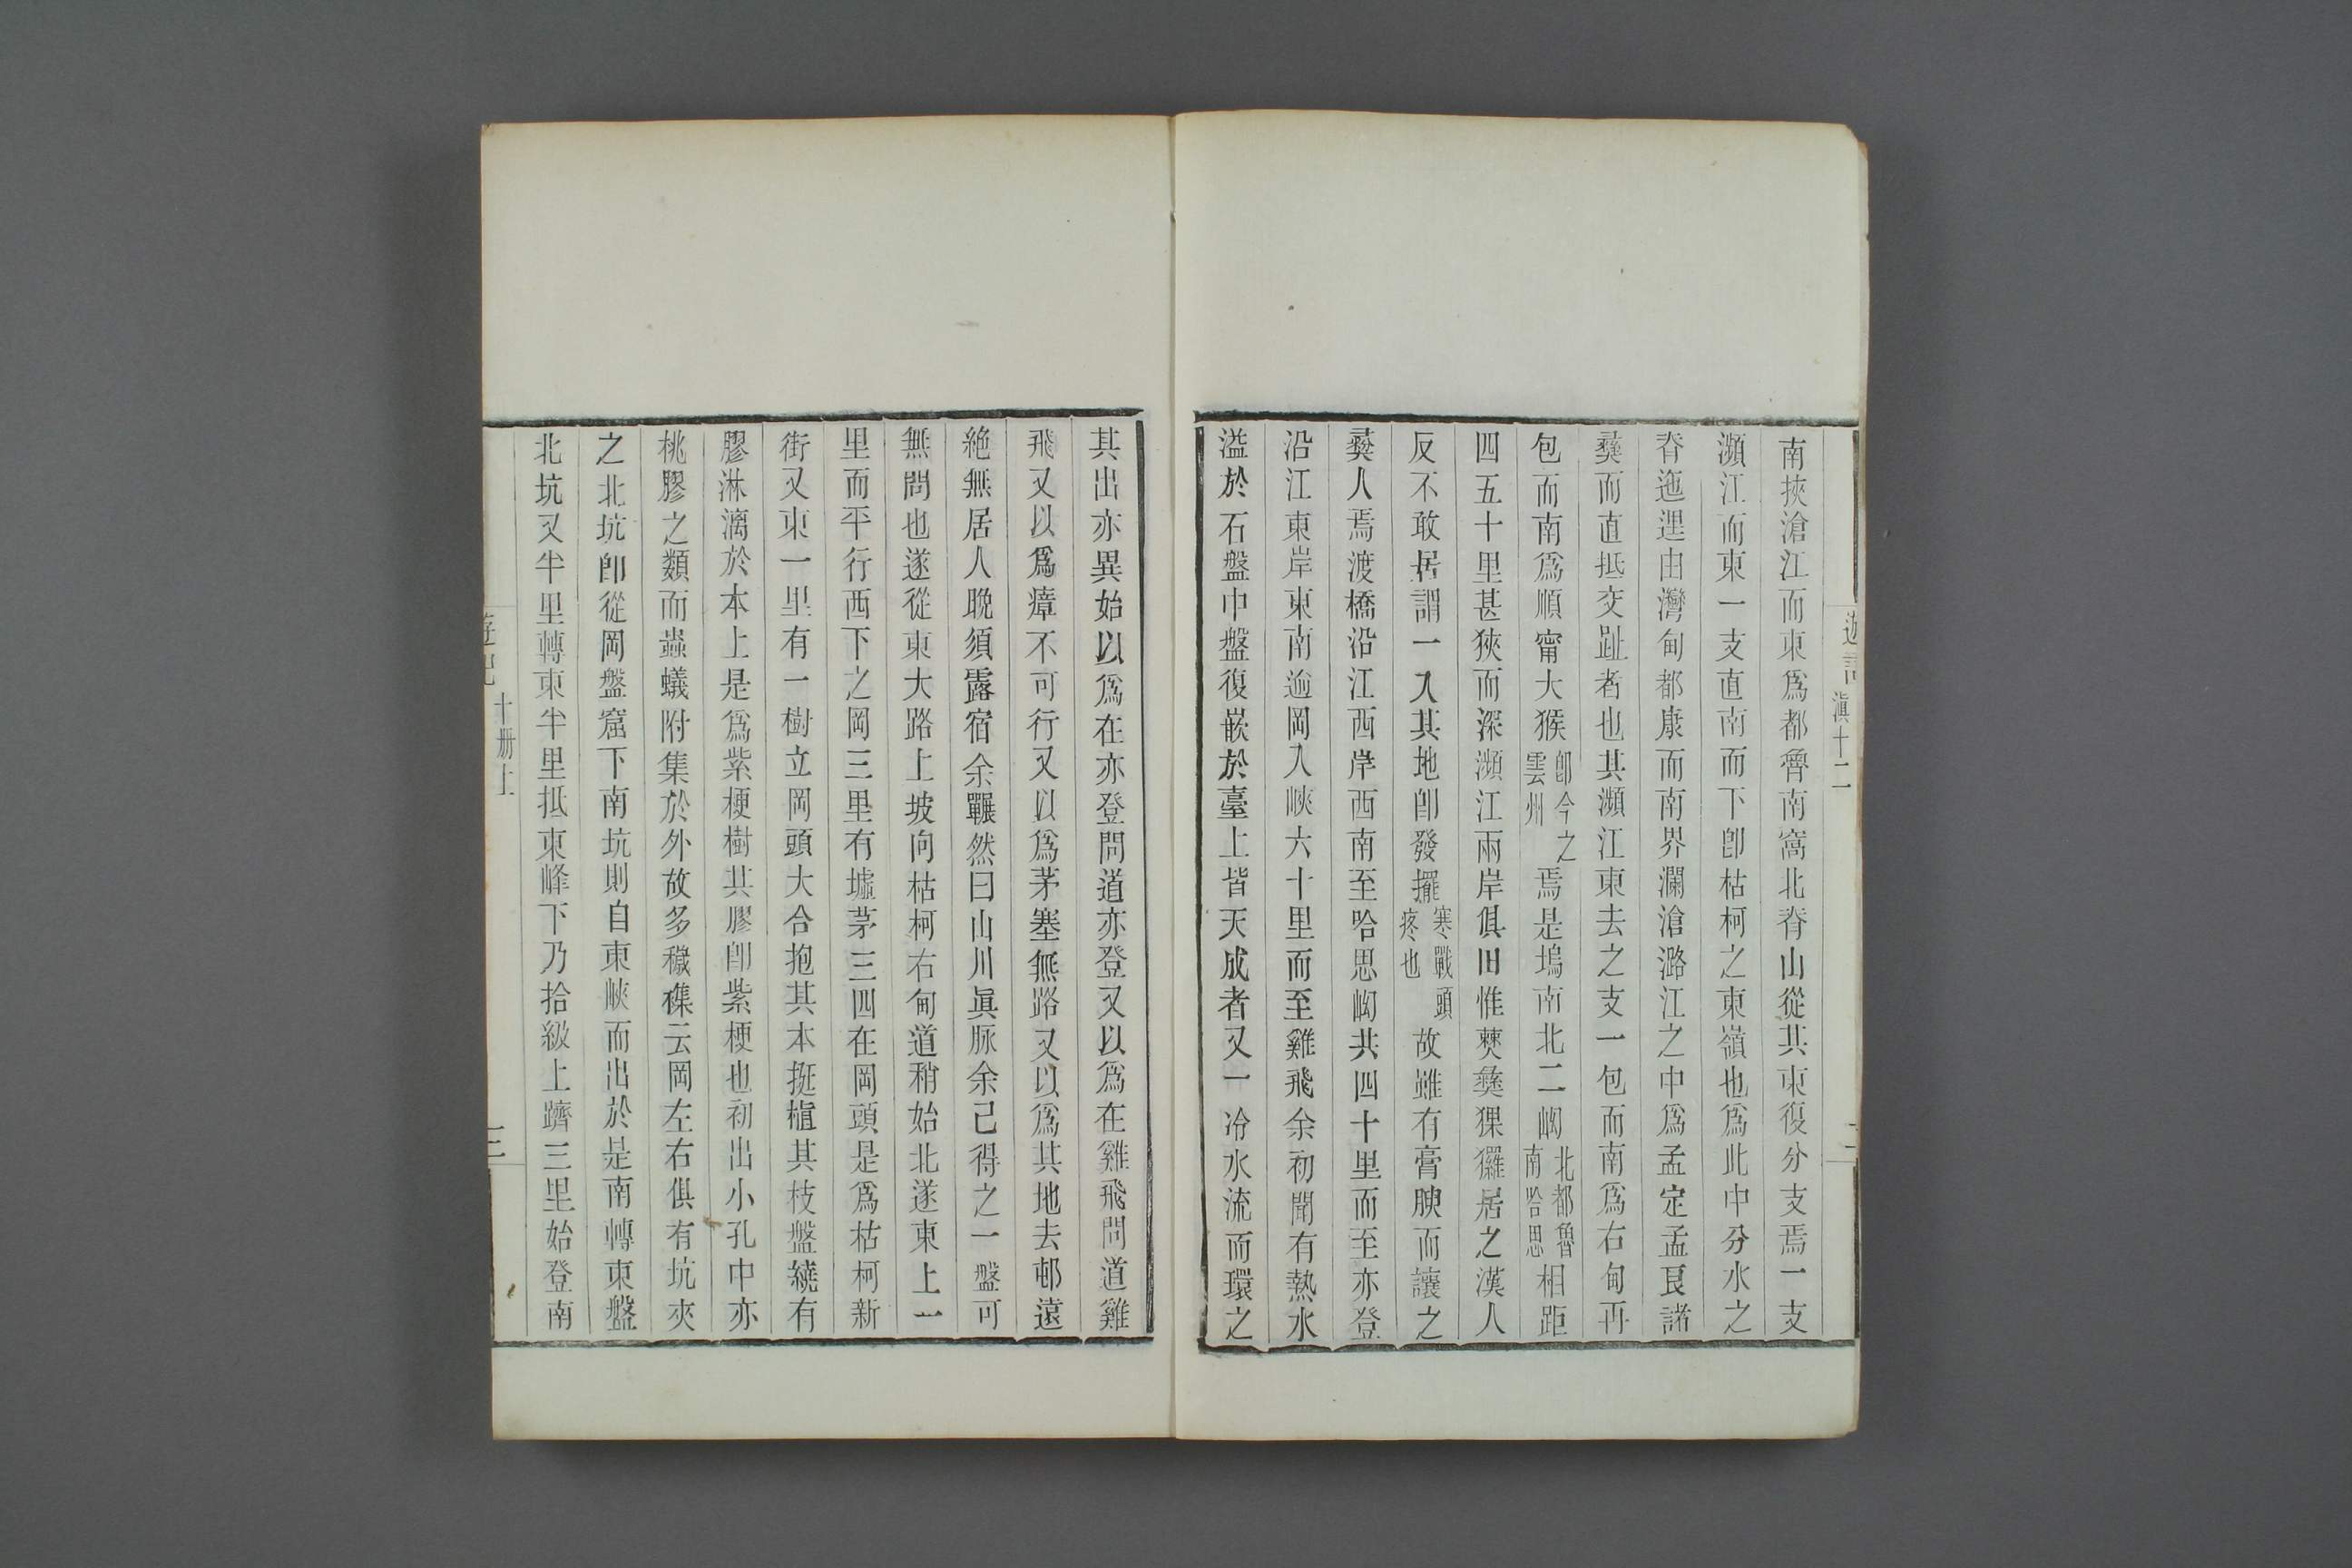 遊記 滇十二 二
南挾滄江而東爲都魯南窩北脊山從其東復分支焉一支
瀕江而東一支直南而下卽枯柯之東嶺也爲此中分水之
脊迤邐由灣甸都康而南界瀾滄潞江之中爲孟定孟艮諸
彝而直抵交趾者也其瀕江東去之支一包而南爲右甸再
包而南爲順甯大猴卽今之雲州焉是塢南北二坳北都魯南哈思相距
四五十里甚狹而深瀕江兩岸俱田惟僰彝猓玀居之漢人
反不敢居謂一入其地卽發擺寒戰頭疼也故雖有膏腴而讓之
彝人焉渡橋沿江西岸西南至哈思坳共四十里而至亦登
沿江東岸東南逾岡入峽六十里而至雞飛余初聞有熱水
溢於石盤中盤復嵌於臺上皆天成者又一冷水流而環之
其出亦異始以爲在亦登問道亦登又以爲在雞飛問道雞
飛又以爲瘴不可行又以爲茅塞無路又以爲其地去邨遠
絶無居人晚須露宿余囅然曰山川眞脉余已得之一盤可
無問也遂從東大路上坡向枯柯右甸道稍始北遂東上一
里而平行西下之岡三里有墟茅三四在岡頭是爲枯柯新
街又東一里有一樹立岡頭大合抱其本挺植其枝盤繞有
膠淋漓於本上是爲紫梗樹其膠卽紫梗也初出小孔中亦
桃膠之類而蟲蟻附集於外故多穢穕云岡左右俱有坑夾
之北坑卽從岡盤窟下南坑則自東峽而出於是南轉東盤
北坑又半里轉東半里抵東峰下乃拾級上躋三里始登南
遊記 十册上 三